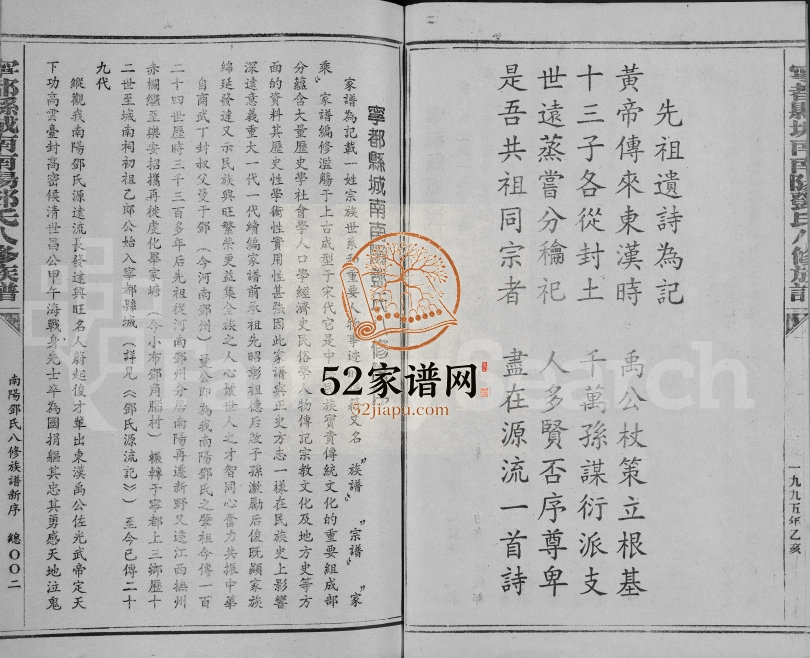 寧都縣城南南陽鄧氏八修族譜
一九九五年乙亥
先祖遺詩為記
黃帝傳來東漢時 禹公杖策立根基
十三子各從封土 千萬孫謀衍派支
世遠蒸嘗分穐祀 人多賢否序尊卑
是吾共祖同宗者 盡在源流一首詩
寧都縣城南南陽鄧氏八修
家譜為記載一姓宗族世系和重要人物事迹 籍又名“族譜”“宗譜”“家
乘”家譜編修濫觴于上古成型于宋代它是中 族寶貴傳統文化的重要組成部
分蘊含大量歷史學社會學人口學經濟史民俗學人物傳記宗教文化及地方史等方
面的資料其歷史性學術性實用性甚強因此家譜與正史方志一樣在民族史上影響
深遠意義重大一代一代續編家譜前承祖先昭彰祖德后啟子孫激勵后後既顯家族
綿延發達又示民族興旺繁榮更益集全族之人心激世人之才智同心奮力共振中華
自商武丁封叔父曼于鄧（今河南鄧州）曼公即為我南陽鄧氏之肇祖今傳一百
二十四世歷時三千三百多年后先祖從河南鄧州分居南陽再遷新野又遠江西撫州
赤欄繼至樂安招攜再徙虔化畢家塘（今小布鄧角腦村）輾轉于寧都上三鄉歷十
二世至城南祠初祖乙郎公始入寧都縣城（詳見《鄧氏源流記》）至今已傳二十
九代
縱觀我南陽鄧氏源遠流長發達興旺名人蔚起俊才輩出東漢禹公佐光武帝定天
下功高雲臺封高密候清世昌公甲午海戰身先士卒為國捐軀其忠其勇感天地泣鬼
南陽鄧氏八修族譜新序 總〇〇二
寧都縣城南南陽鄧氏八修族譜
52家谱网
52jiapu.com
Search